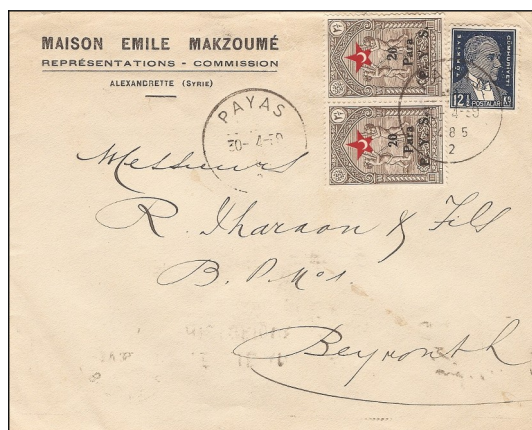 MAISON EMILE MAKZOUMÉ
REPRÉSENTATIONS - COMMISSION
ALEXANDRETTE (SYRIE)
PAYAS
30-4-39
20
Para
P. Y. S.
20
Para
P. Y. S.
TÜRKİYE CUMHURİYETİ
12½
POSTALAR
4-39
485
2
Messieurs
R. Pharaon & Fils
B.P. No 1
Beyrouth